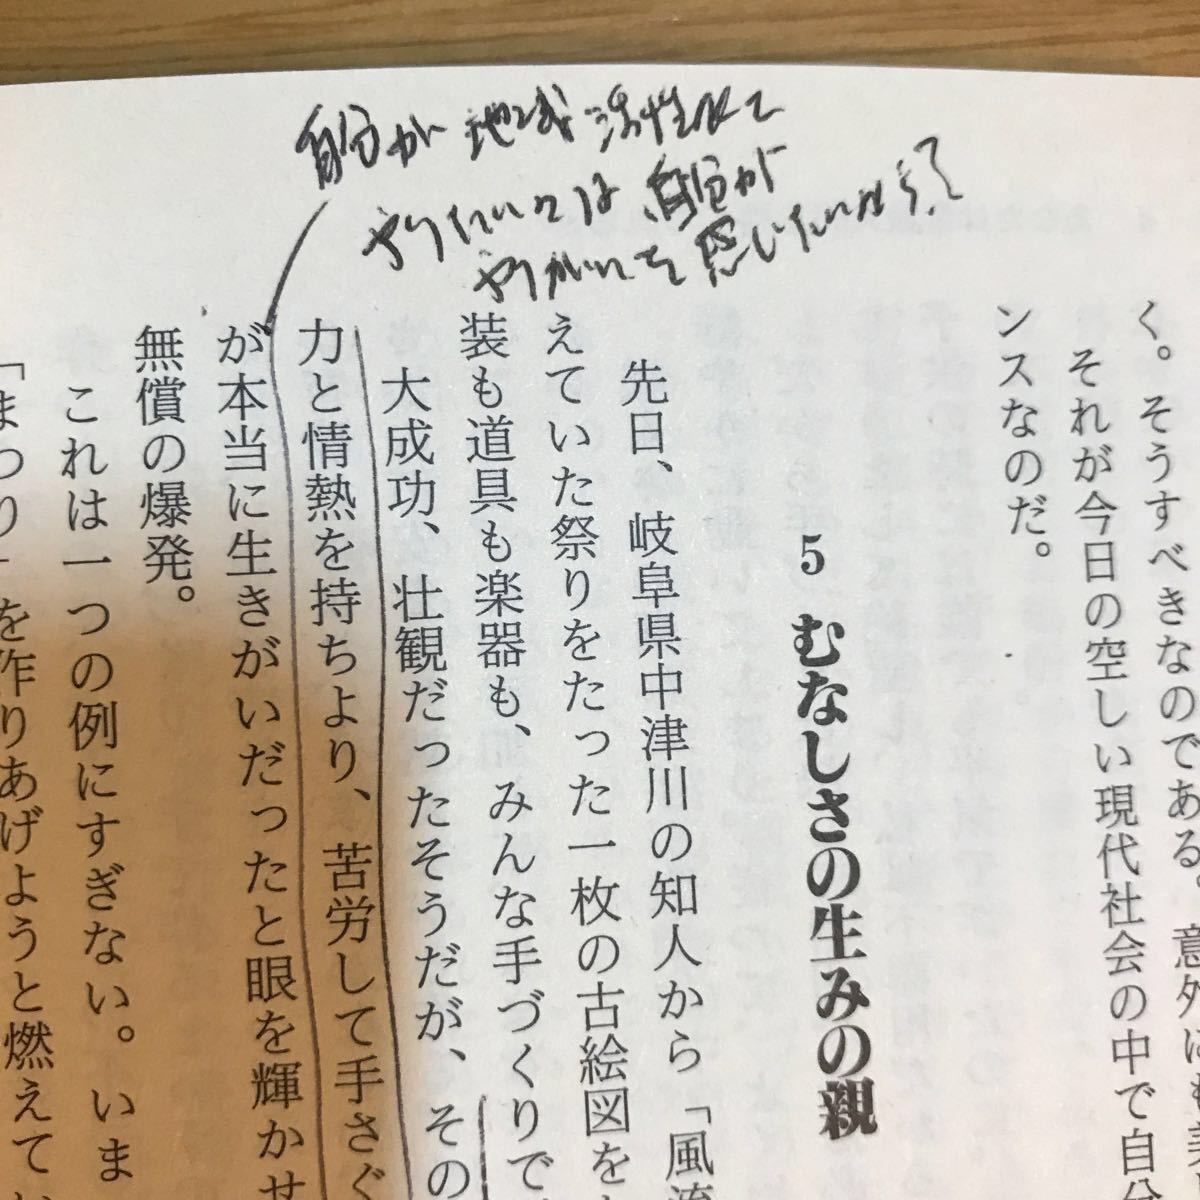 自分が地域活性化で
やりたいことは自分が
やりがいを感じたいから?
く。そうすべきなのである。意外にも
それが今日の空しい現代社会の中で自分
ンスなのだ。
5 むなしさの生みの親
先日、岐阜県中津川の知人から「風流
えていた祭りをたった一枚の古絵図を
装も道具も楽器も、みんな手づくりで
大成功、壮観だったそうだが、その
力と情熱を持ちより、苦労して手さぐ
が本当に生きがいだったと眼を輝かせ
無償の爆発。
これは一つの例にすぎない。いま
「まつり」を作りあげようと燃えて